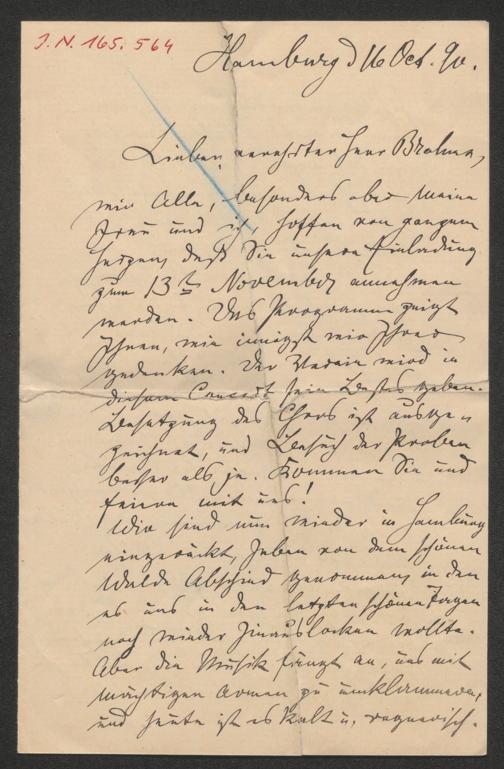 J.N. 165.564
Hamburg d 16 Oct. 90.
Lieber, verehrter Herr Brahms,
wir Alle, besonders aber meine
Frau und ich, hoffen von ganzem
Herzen, daß Sie unsere Einladung
zum 13ten November annehmen
werden. Das Programm zeigt
Ihnen, wie innigst wir Ihrer
gedenken. Der Verein wird in
diesem Concert sein Bestes geben.
Besetzung des Chors ist ausge-
zeichnet, und Besuch der Proben
besser als je. Kommen Sie und
feiern mit uns!
Wir sind nun wieder in Hamburg
eingerückt, haben von dem schönen
Walde Abschied genommen, in den
es uns in den letzten schönen Tagen
noch wieder hinauslocken wollte.
Aber die Musik fängt an, uns mit
mächtigen Armen zu umklammern,
und heute ist es kalt u. regnerisch.